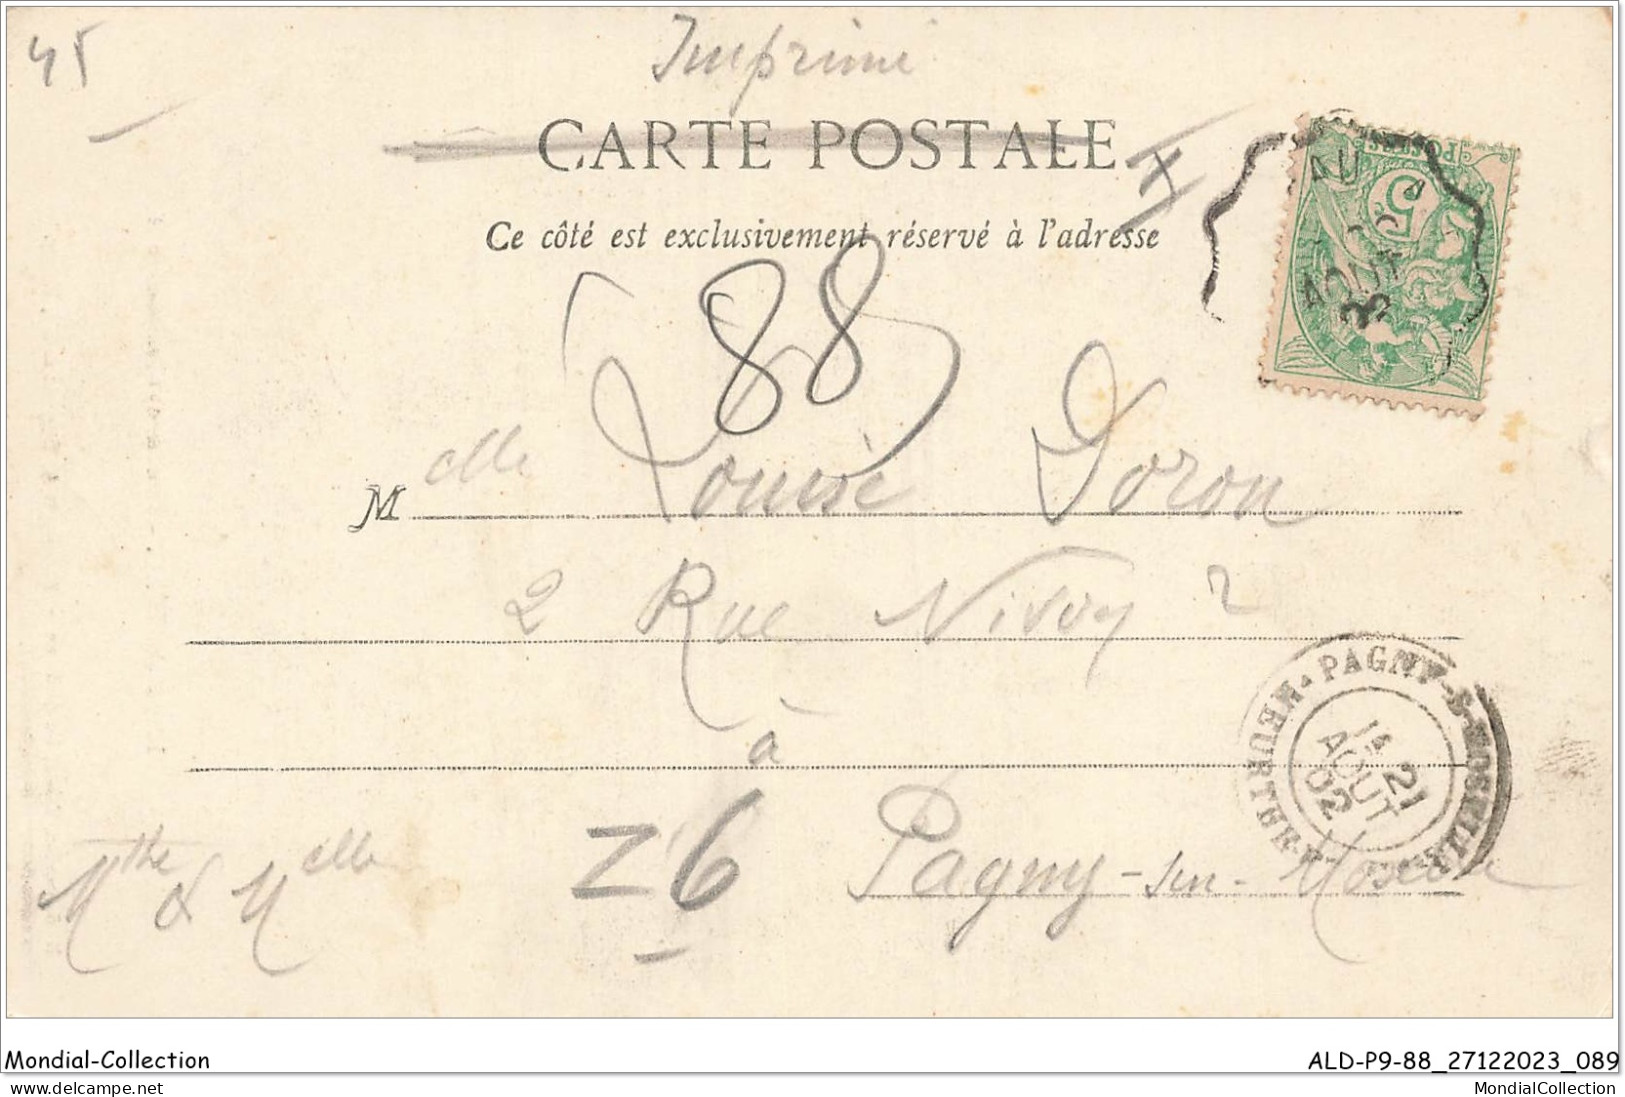 45
Imprimé
CARTE POSTALE
Ce côté est exclusivement réservé à l'adresse
POSTES
5
AU
AOUT
88
Melle Louise Doron
2 Rue Nivoy 2
à
Pagny-sur-Moselle
26
PAGNY-S-MOSELLE
MEURTHE
1E 21
AOUT
02
Mondial-Collection
ALD-P9-88_27122023_089
MondialCollection